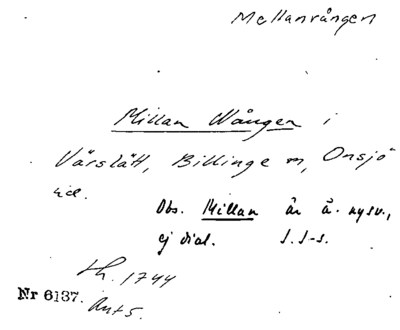 Mellanvången
Millan Wången i
Värslätt, Billinge sn, Onsjö
hd.
Obs. Millan är ä. nysv.,
ej dial. S. I-s.
Lh. 1744
Nr 6137. Ant 5.